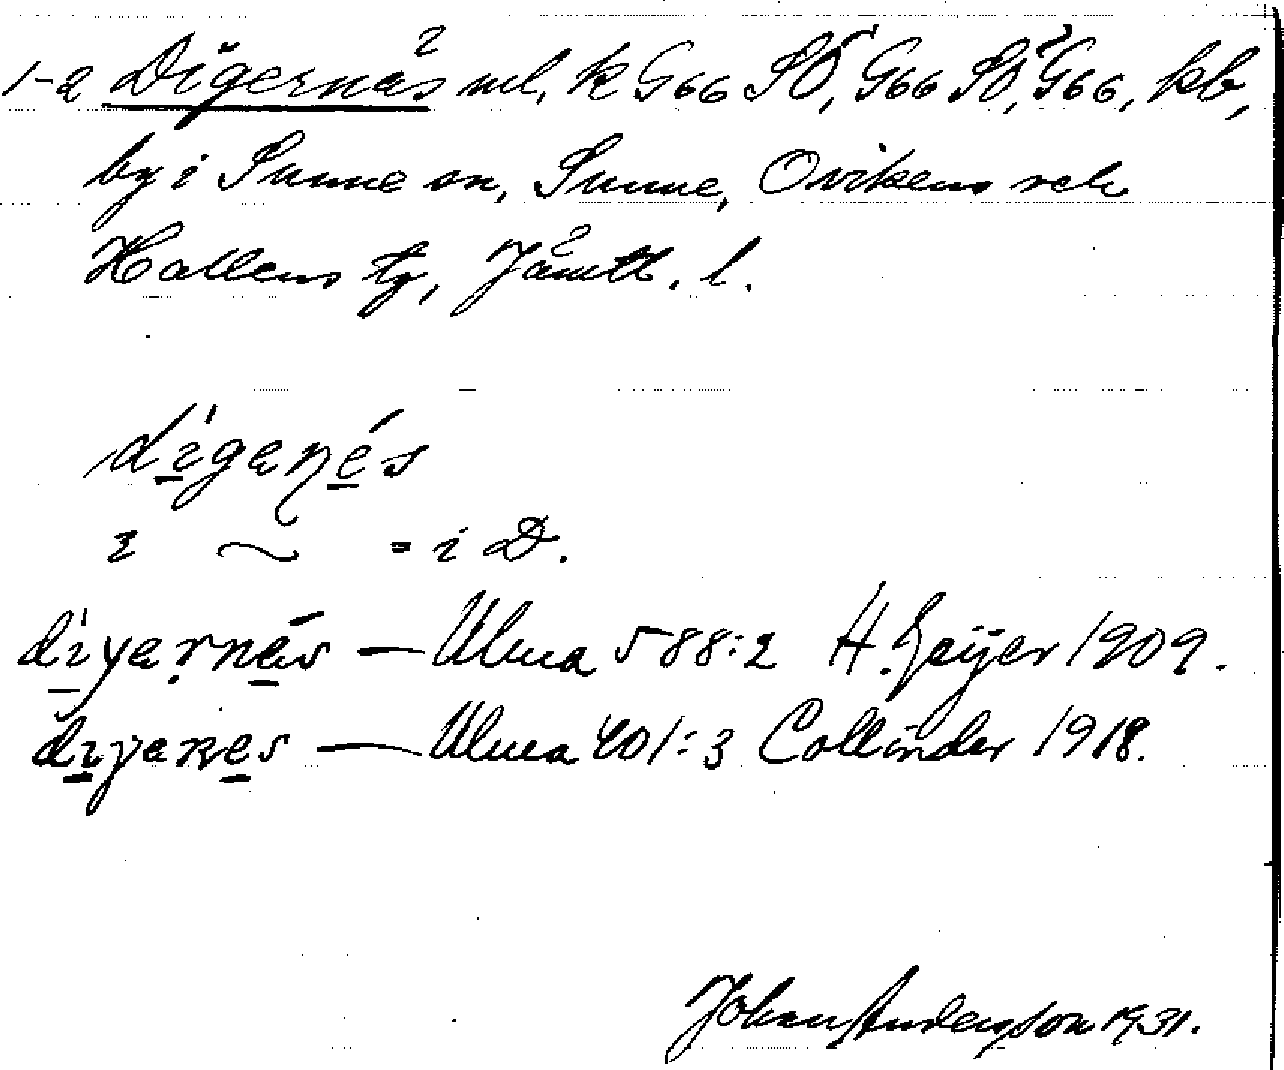 1-2 Digernäs ml, k G66 SÖ, G66 SV, G66, kb,
by i Sunne sn, Sunne, Ovikens och
Hallens tg, Jämtl. l.
digenés
i ~ = i D.
diyernäs — Ulma 588:2 H. Geijer 1909.
diyenes — Ulma 401:3 Collinder 1918.
Johan Anderson 1931.